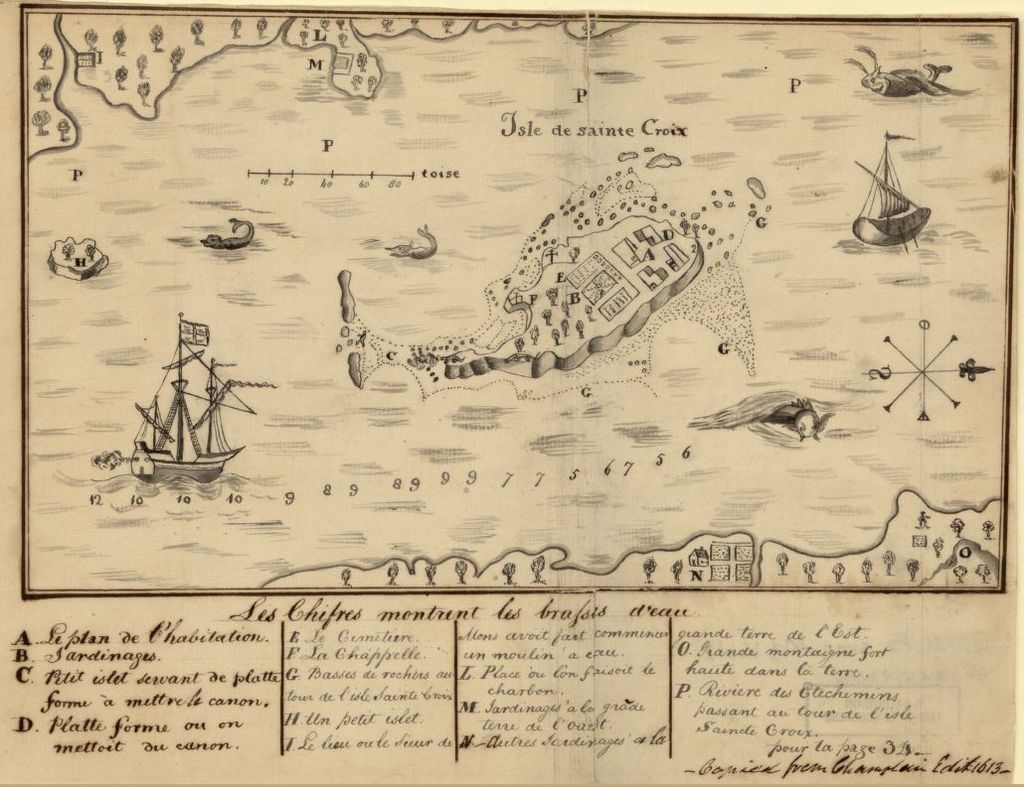 L
I
M
P
P
Isle de sainte Croix
P
P
toise
10 20 40 60 80
G
H
D
A
E
F
B
C
G
G
5 6 7 5 6
12 10 10 10 9 8 9 8 9 9 9 7 7
N
O
Les Chifres montrent les brasses d'eau
A. Le plan de l'habitation.
B. Jardinages.
C. Petit islet servant de platte
forme à mettre le canon.
D. Platte forme ou on
mettoit du canon.
E Le Cimetiere.
F La Chappelle.
G Basses de rochers au
tour de l'isle Sainte Croix
H. Un petit islet.
I Le lieu ou le Sieur de
Mons avoit fait commencer
un moulin a eau.
L. Place ou lon faisoit le
charbon.
M. Jardinages à la grāde
terre de l'Ouest.
N Autres Jardinages a la
grande terre de l'Est.
O. Grande montaigne fort
haute dans la terre.
P. Riviere des Etechemins
passant au tour de l'isle
Sainte Croix.
pour la page 34
Copied from Champlain Edit 1613